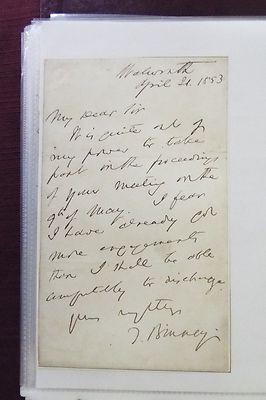 Walworth
April 21. 1853
My Dear Sir
It is quite out of
my power to take
part in the proceedings
of your meeting on the
9th of May. I fear
I have already got
more engagements
than I shall be able
to discharge.
yours
T. Binney